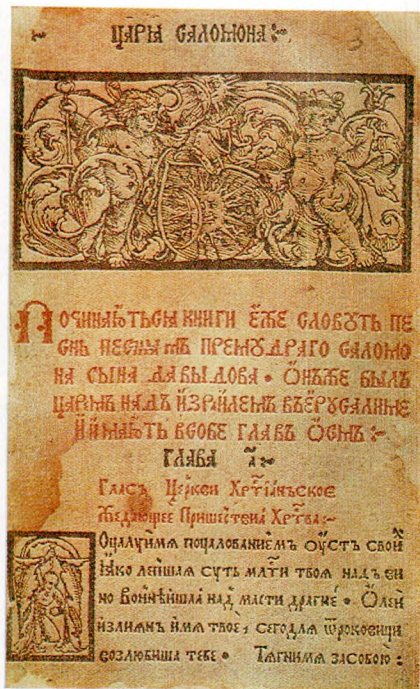 ЦАРІА САЛОМОНА :~
3
ПОЧИНАЮТЬСЯ КНИГИ ЕЖЕ СЛОВУТЬ ПЕ
СНЬ ПЕСНЯМЪ ПРЕМУДРАГО САЛОМО
НА СЫНА ДАВЫДОВА • ОНЪЖЕ БЫЛЪ
ЦАРЕМЪ НАДЪ ИЗРАИЛЕМЪ ВЪЕРУСАЛИМЕ
И ИМАЮТЬ ВСОБЕ ГЛАВЪ ОСМЪ :~
ГЛАВА а҃ :~
Гласъ Церкви Хрⷭ҇тиѧньское
Жедающее Пришествиѧ Хрⷭ҇тва :~
Оцалуймѧ поцалованиемъ ѹстъ свои
Ꙗко лепшаѧ суть млⷭ҇ти твоѧ надъ ви
но Воннѣйшаѧ над масти драгие • Олеи
излиѧнъ имѧ твое , сегодлѧ ѿроковици
возлюбиша тебе • Тѧгнимѧ засобою :